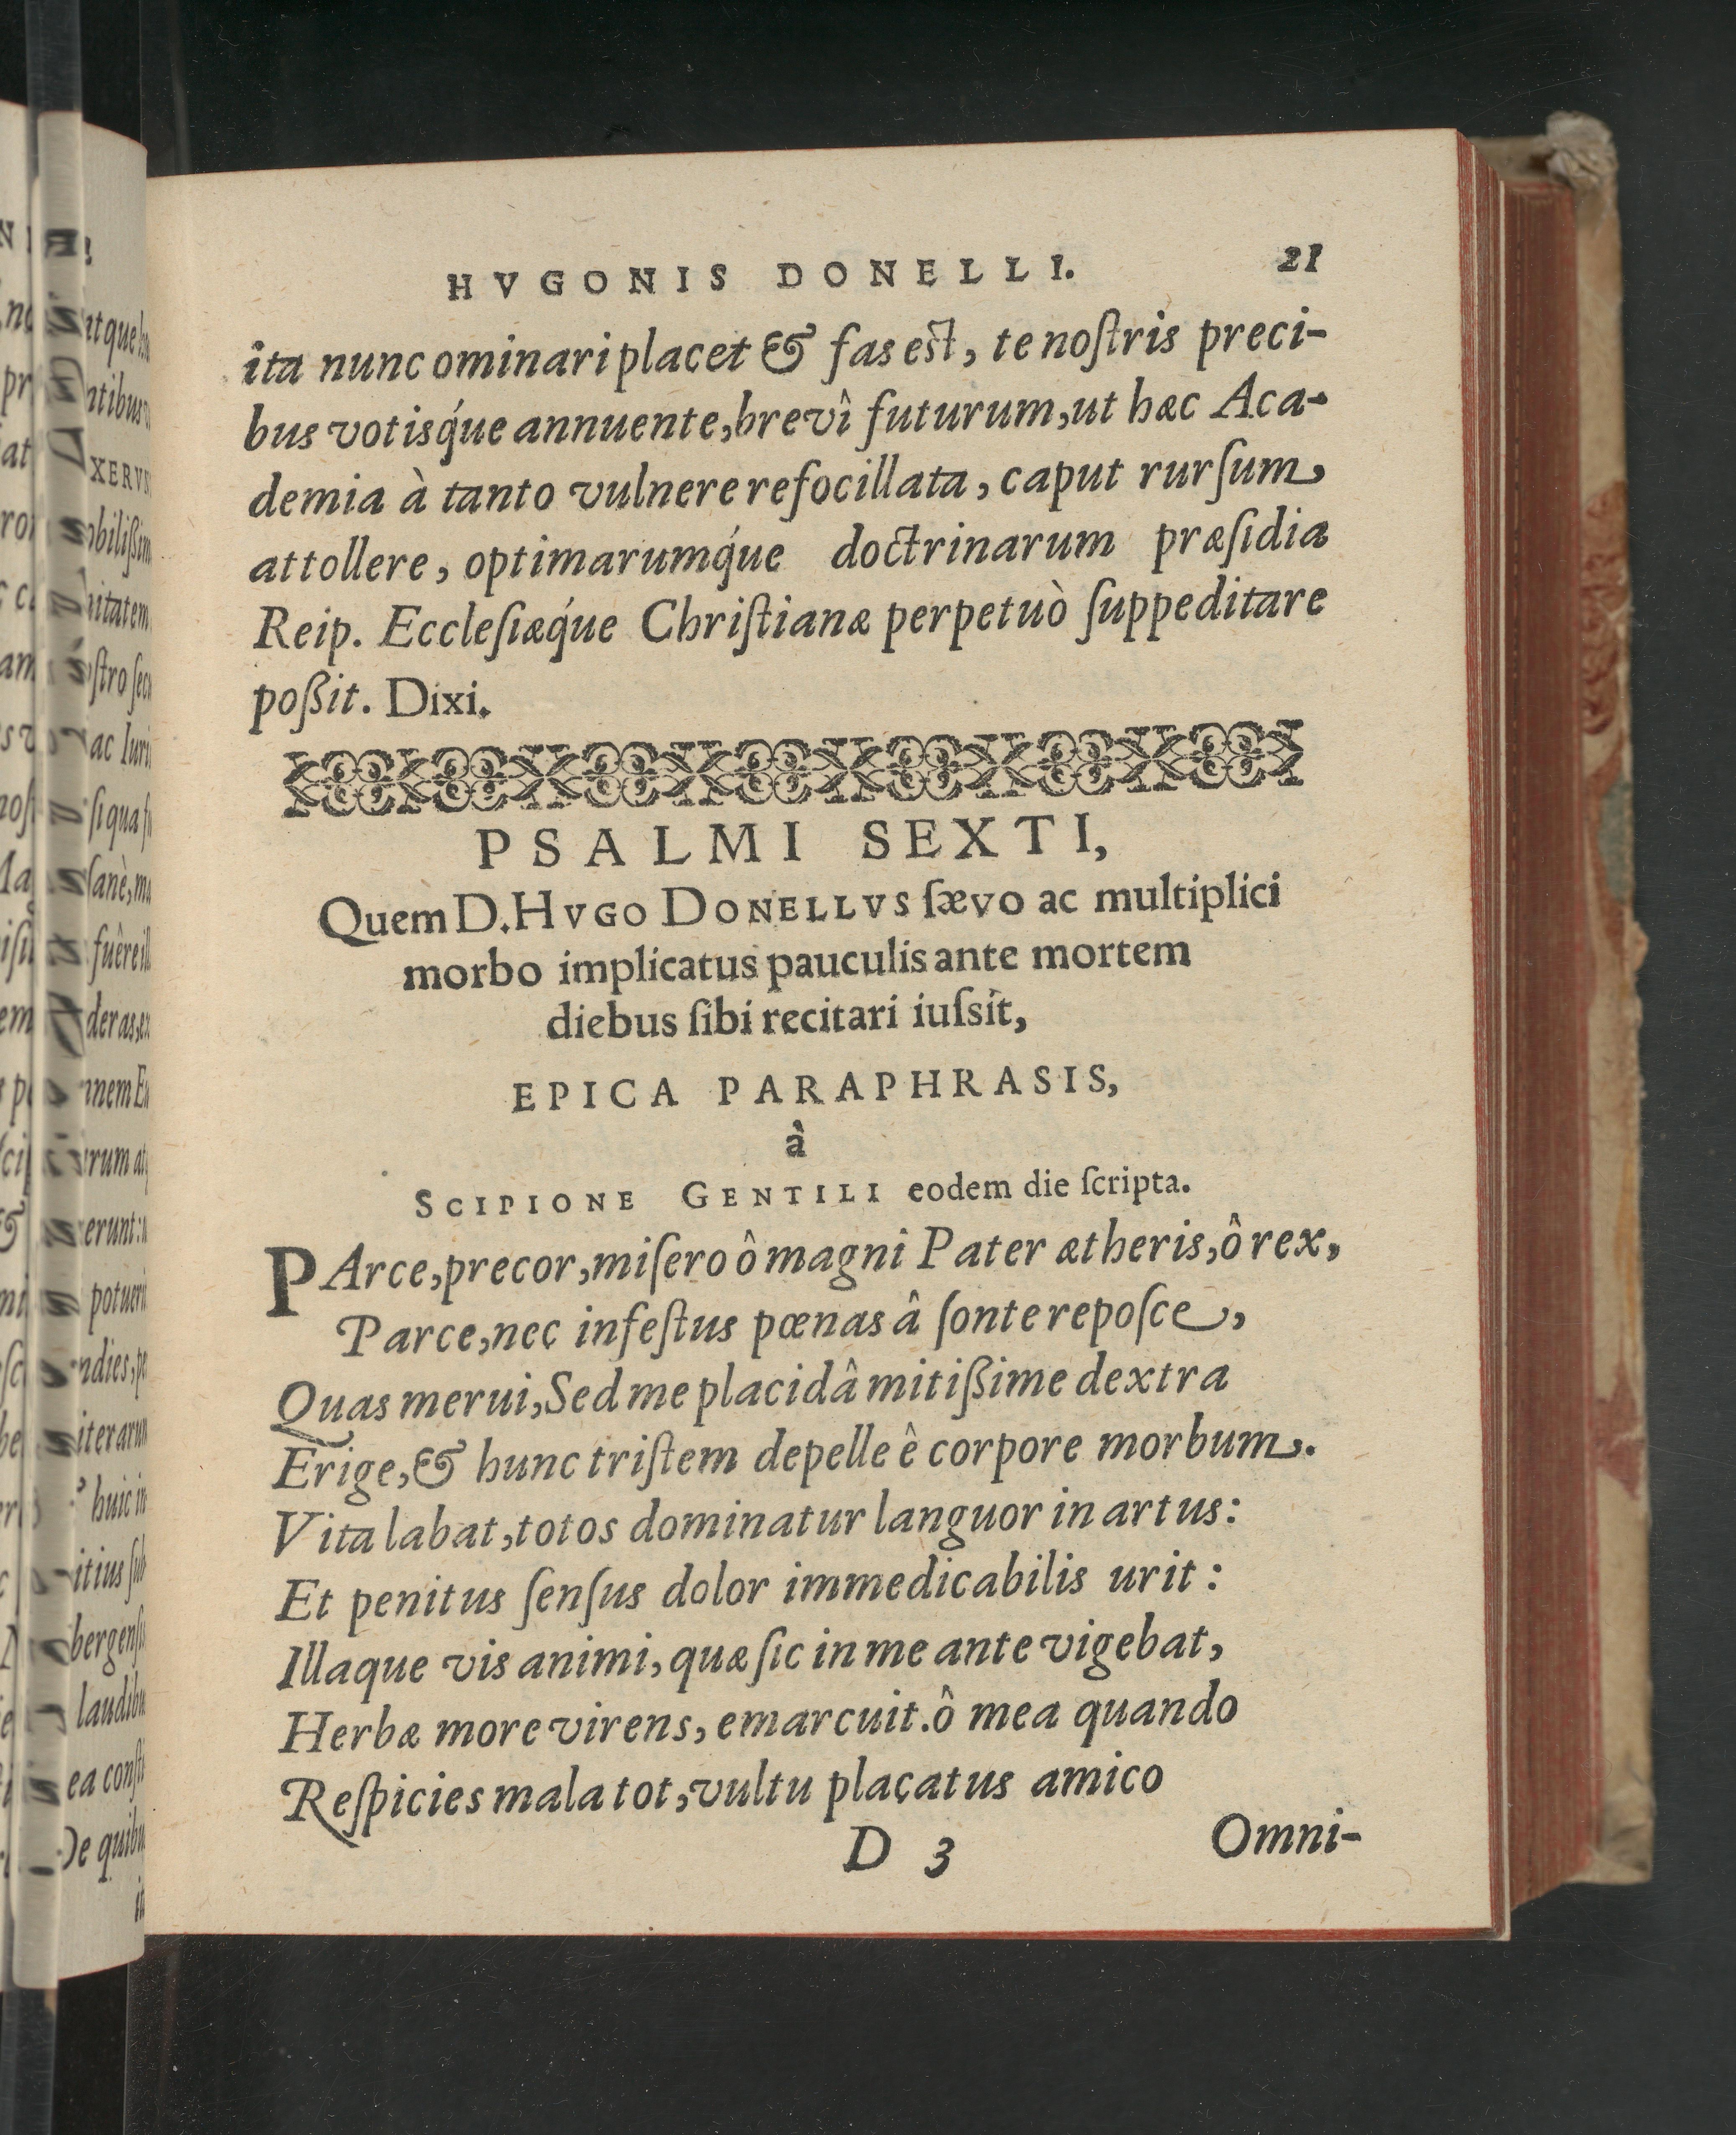 HVGONIS DONELLI. 21
ita nunc ominari placet & fas est, te noſtris preci-
bus votisq́ue annuente, brevî futurum, ut hæc Aca-
demia à tanto vulnere refocillata, caput rurſum
attollere, optimarumq́ue doctrinarum præſidia
Reip. Eccleſiæq́ue Chriſtianæ perpetuò ſuppeditare
poßit. Dixi.
PSALMI SEXTI,
Quem D. HVGO DONELLVS ſævo ac multiplici
morbo implicatus pauculis ante mortem
diebus ſibi recitari iuſsit,
EPICA PARAPHRASIS,
â
SCIPIONE GENTILI eodem die ſcripta.
PArce, precor, miſero ô magni Pater ætheris, ô rex,
Parce, nec infeſtus pœnas â ſonte repoſce,
Quas merui, Sed me placidâ mitißime dextra
Erige, & hunc triſtem depelle ê corpore morbum.
Vita labat, totos dominatur languor in artus:
Et penitus ſenſus dolor immedicabilis urit:
Illaque vis animi, quæ ſic in me ante vigebat,
Herbæ more virens, emarcuit. ô mea quando
Reſpicies mala tot, vultu plaçatus amico
D 3 Omni-